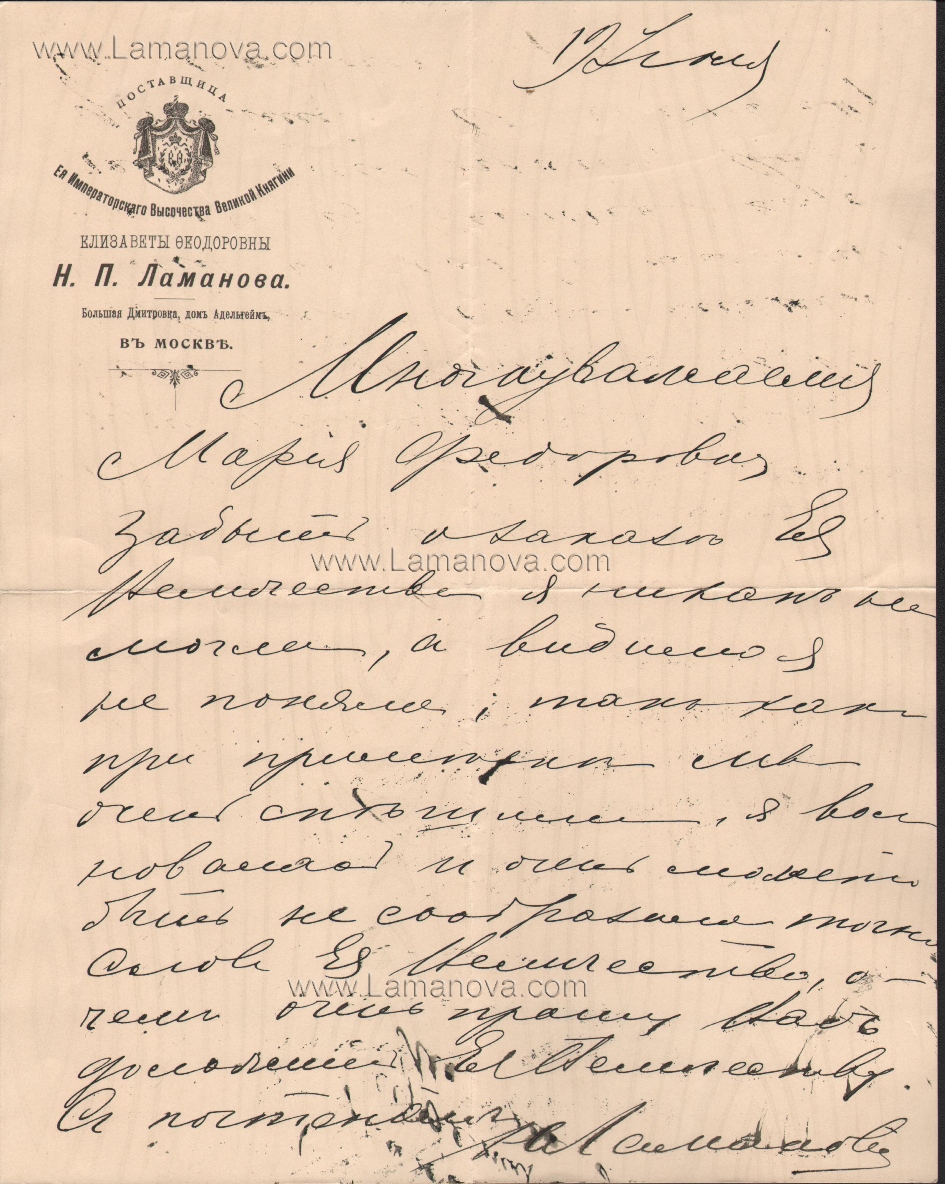 www.Lamanova.com
19 Июня
ПОСТАВЩИЦА
Ея Императорскаго Высочества Великой Княгини
ЕЛИЗАВЕТЫ ѲЕОДОРОВНЫ
Н. П. Ламанова.
Большая Дмитровка, домъ Адельгеймъ,
ВЪ МОСКВѢ.
Многоуважаемая
Мария Федоровна
забыть о заказѣ Ея
www.Lamanova.com
Величества я никакъ не
могла, а видимо я
не поняла; такъ как
при примѣркѣ мы
очень спѣшили, я вол
новалась и очень можетъ
быть не сообразила точно
слова Ея Величества, о
www.Lamanova.com
чемъ очень прошу Васъ
доложить Ея Величеству.
Съ почтеніемъ
Н Ламанова